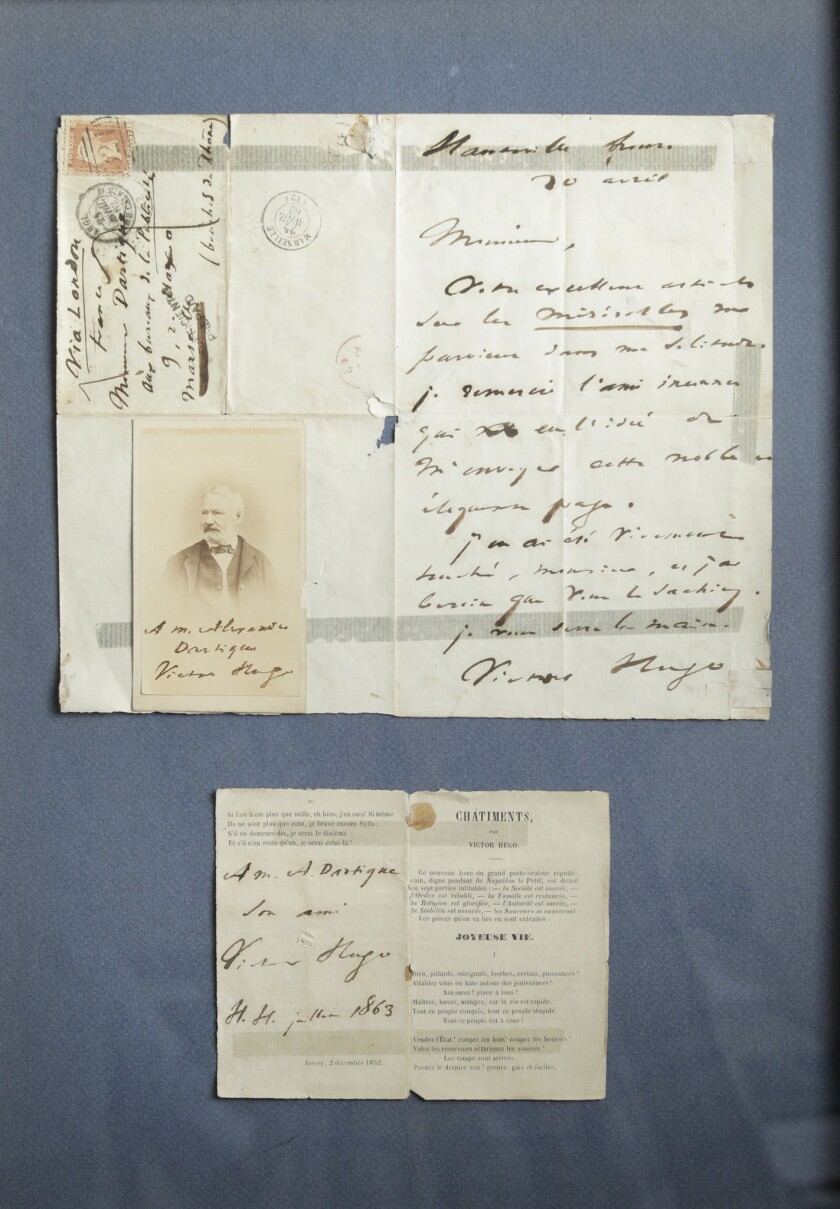 Via London
France
Monsieur Dartigue
aux bureaux de la Publicité
Marseille
(bouches du Rhône)
MARSEILLE
25
AVRIL
62
Hauteville house
20 avril
Monsieur,
Votre excellent article
sur les Misérables me
parvient dans ma solitude.
je remercie l'ami inconnu
qui a eu l'idée de
m'envoyer cette noble et
éloquente page.
j'en ai été vivement
touché, monsieur, et j'ai
besoin que vous le sachiez.
je vous serre la main.
Victor Hugo
A M. Alexandre
Dartigue
Victor Hugo
Si l'on n'est plus que mille, eh bien, j'en suis! Si même
Ils ne sont plus que cent, je brave encore Sylla;
S'il en demeure dix, je serai le dixième
Et s'il n'en reste qu'un, je serai celui-là!
A M. A. Dartigue
Son ami
Victor Hugo
H. H. juillet 1863
Jersey, 2 décembre 1852.
CHÂTIMENTS,
PAR
VICTOR HUGO.
Ce nouveau livre du grand poète-orateur républi-
cain, digne pendant de Napoléon le Petit, est divisé
en sept parties intitulées: — la Société est sauvée, —
l'Ordre est rétabli, — la Famille est restaurée, —
la Religion est glorifiée, — l'Autorité est sacrée, —
la Stabilité est assurée, — les Sauveurs se sauveront.
Les pièces qu'on va lire en sont extraites:
JOYEUSE VIE.
I
Bien, pillards, intrigants, fourbes, crétins, puissances!
Attablez vous en hâte autour des jouissances!
Accourez! place à tous!
Maîtres, buvez, mangez, car la vie est rapide.
Tout ce peuple conquis, tout ce peuple stupide,
Tout ce peuple est à vous!
Vendez l'État! coupez les bois! coupez les bourses!
Videz les réservoirs et tarissez les sources!
Les temps sont arrivés.
Prenez le dernier sou! prenez, gais et faciles,